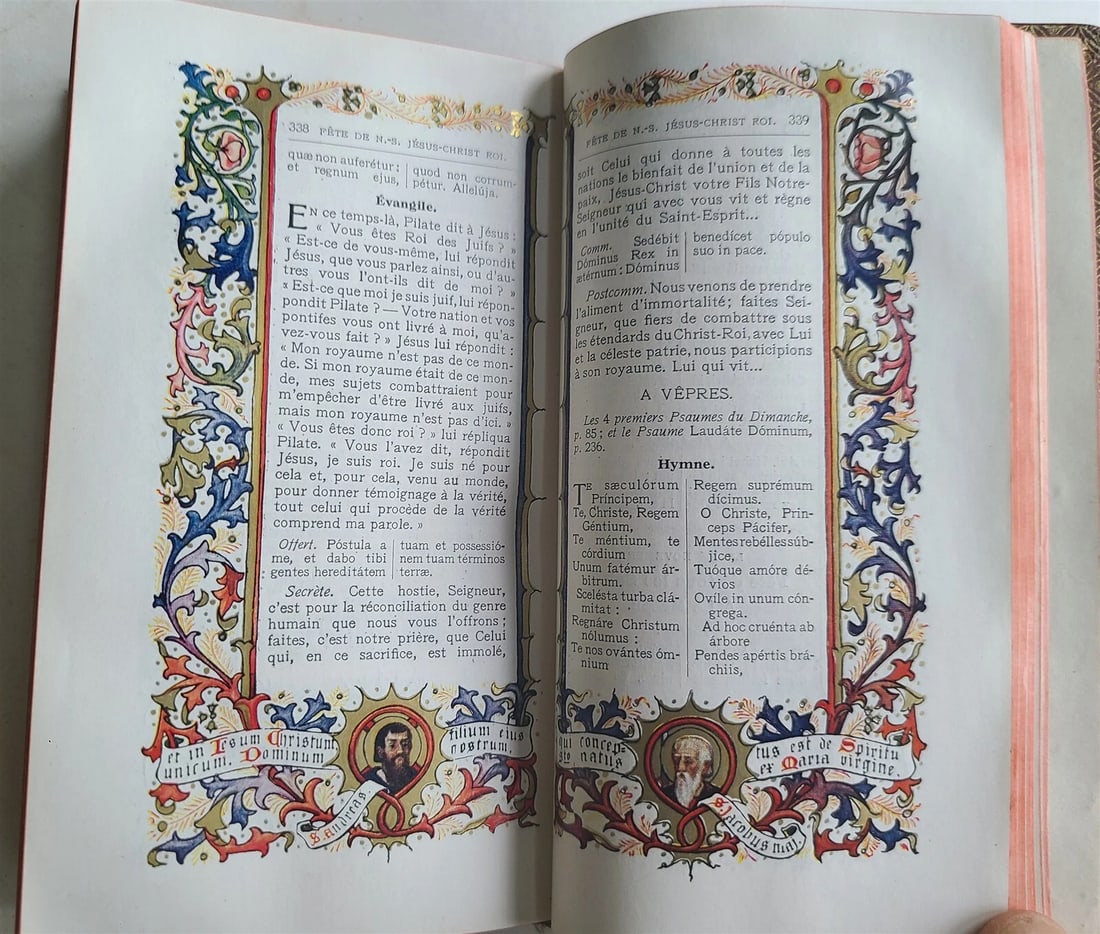 338 FÊTE DE N.-S. JÉSUS-CHRIST ROI.
quæ non auferétur:
et regnum ejus,
quod non corrum-
pétur. Allelúja.
Évangile.
EN ce temps-là, Pilate dit à Jésus :
« Vous êtes Roi des Juifs ? »
« Est-ce de vous-même, lui répondit
Jésus, que vous parlez ainsi, ou d'au-
tres vous l'ont-ils dit de moi ? »
« Est-ce que moi je suis juif, lui répon-
pondit Pilate ? — Votre nation et vos
pontifes vous ont livré à moi, qu'a-
vez-vous fait ? » Jésus lui répondit :
« Mon royaume n'est pas de ce mon-
de. Si mon royaume était de ce mon-
de, mes sujets combattraient pour
m'empêcher d'être livré aux juifs,
mais mon royaume n'est pas d'ici. »
« Vous êtes donc roi ? » lui répliqua
Pilate. « Vous l'avez dit, répondit
Jésus, je suis roi. Je suis né pour
cela et, pour cela, venu au monde,
pour donner témoignage à la vérité,
tout celui qui procède de la vérité
comprend ma parole. »
Offert. Póstula a
me, et dabo tibi
gentes hereditátem
tuam et possessió-
nem tuam términos
terræ.
Secrète. Cette hostie, Seigneur,
c'est pour la réconciliation du genre
humain que nous vous l'offrons ;
faites, c'est notre prière, que Celui
qui, en ce sacrifice, est immolé,
et in Iesum Christum
unicum. Dominum
filium eius
nostrum.
S. Andreas.
FÊTE DE N.-S. JÉSUS-CHRIST ROI. 339
soit Celui qui donne à toutes les
nations le bienfait de l'union et de la
paix, Jésus-Christ votre Fils Notre-
Seigneur qui avec vous vit et règne
en l'unité du Saint-Esprit...
Comm. Sedébit
Dóminus Rex in
ætérnum : Dóminus
benedícet pópulo
suo in pace.
Postcomm. Nous venons de prendre
l'aliment d'immortalité ; faites Sei-
gneur, que fiers de combattre sous
les étendards du Christ-Roi, avec Lui
et la céleste patrie, nous participions
à son royaume. Lui qui vit...
A VÊPRES.
Les 4 premiers Psaumes du Dimanche,
p. 85 ; et le Psaume Laudáte Dóminum,
p. 236.
Hymne.
TE sæculórum
Príncipem,
Te, Christe, Regem
Géntium,
Te méntium, te
córdium
Unum fatémur ár-
bitrum.
Scelésta turba clá-
mitat :
Regnáre Christum
nólumus :
Te nos ovántes óm-
nium
Regem suprémum
dícimus.
O Christe, Prin-
ceps Pácifer,
Mentes rebélles súb-
jice,
Tuóque amóre dé-
vios
Ovíle in unum cón-
grega.
Ad hoc cruénta ab
árbore
Pendes apértis brá-
chiis,
qui concep-
sto natus
tus est de Spiritu
ex Maria virgine.
S. Jacobus maj.